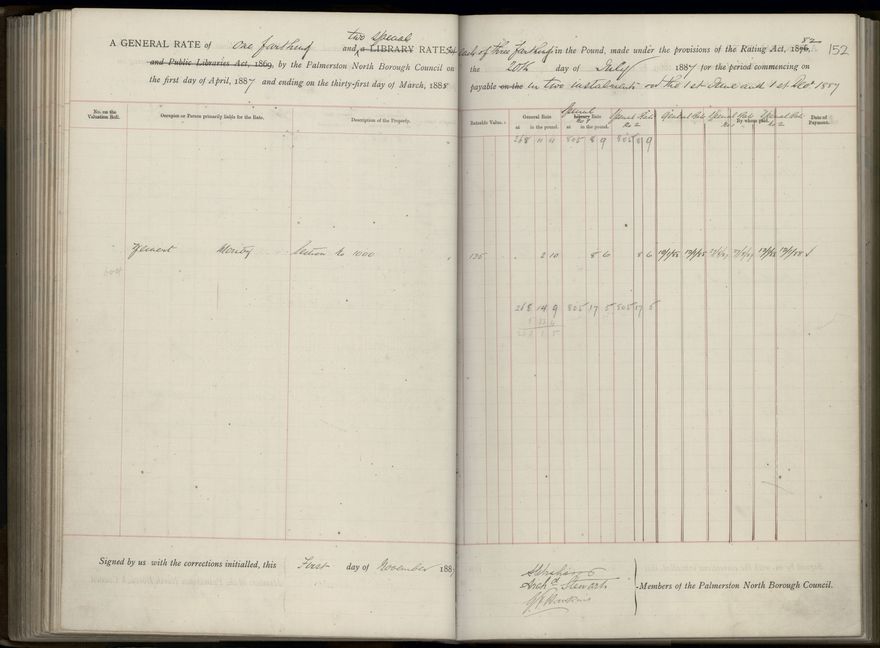 A GENERAL RATE of One farthing and two special a LIBRARY RATES each of three farthings in the Pound, made under the provisions of the Rating Act, 1876, 82
152
and Public Libraries Act, 1869, by the Palmerston North Borough Council on the 20th day of July 1887 for the period commencing on
the first day of April, 1887 and ending on the thirty-first day of March, 1888 payable on the in two instalments on the 1st June and 1st Decr 1887
No. on the Valuation Roll.
Occupier or Person primarily liable for the Rate.
Description of the Property.
Rateable Value.
General Rate
at in the pound.
Special Library Rate No 1
at in the pound.
Special Rate No 2
General Rate Special Rate No 1 Special Rate No 2
By whom paid.
Date of Payment.
268 11 11 805 8 9 805 8 9
Section No 1000 135 2 10 8 6 8 6
268 14 9 805 17 5 805 17 5
Signed by us with the corrections initialled, this First day of November 1887
Archd Stewart
Members of the Palmerston North Borough Council.